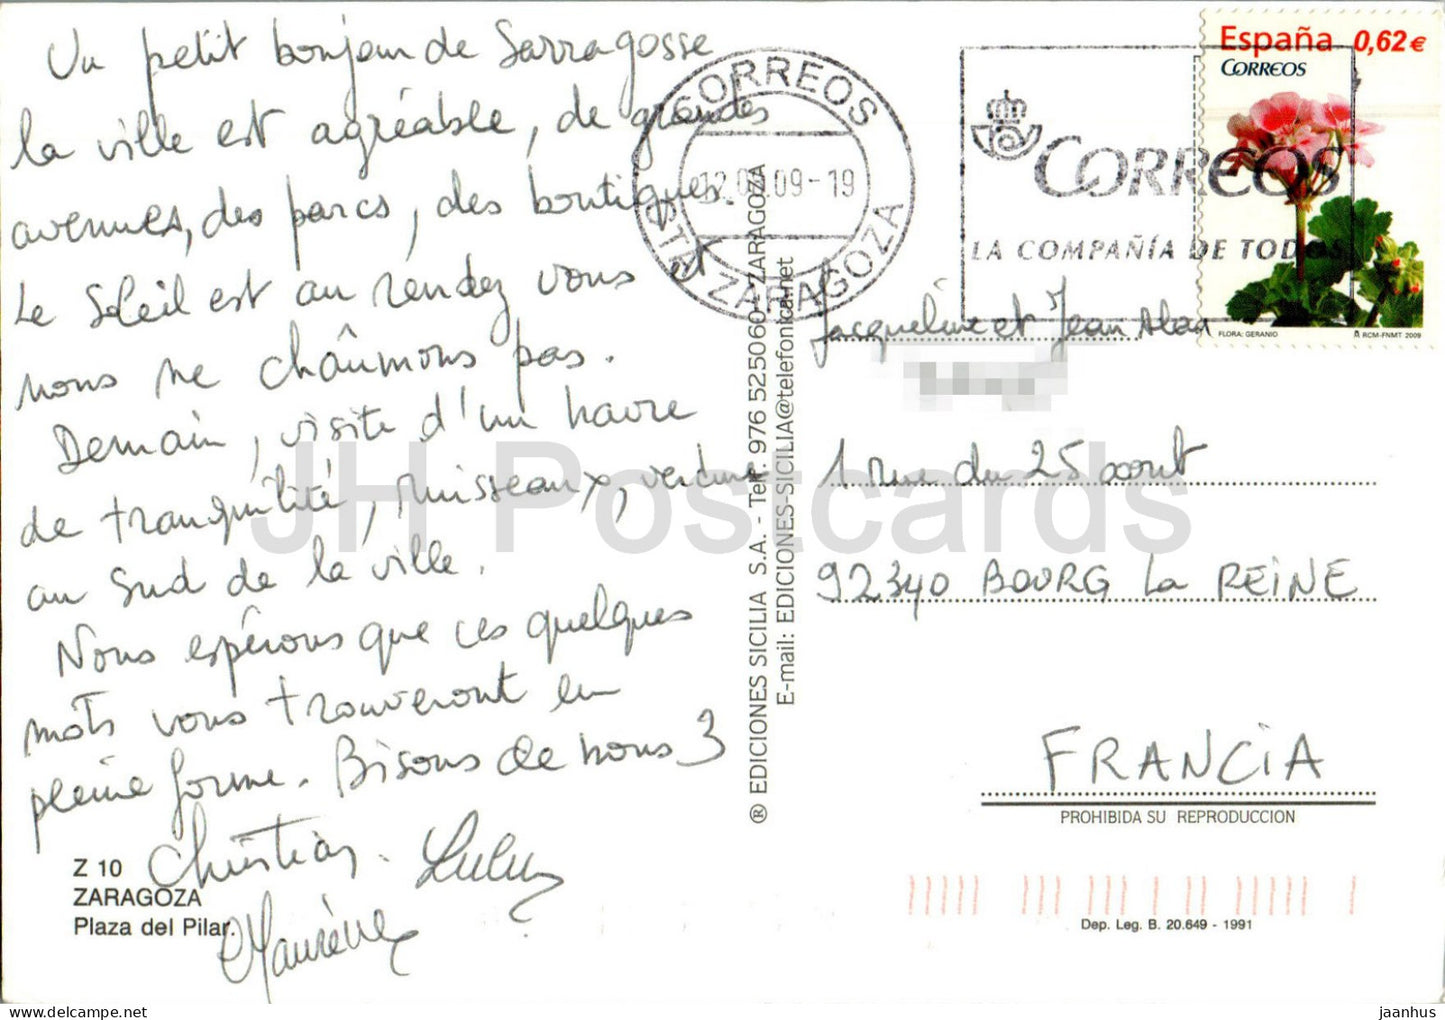 Un petit bonjour de Sarragosse
la ville est agréable, de grandes
avenues, des parcs, des boutiques.
Le Soleil est au rendez vous et
nous ne chaûmons pas.
Demain, visite d'un havre
de tranquilité, ruisseaux, verdure
au sud de la ville.
Nous espérons que ces quelques
mots vous trouveront en
pleine forme. Bisous de nous 3
Christian. Lulu
Maurène
Z 10
ZARAGOZA
Plaza del Pilar.
® EDICIONES SICILIA S.A. - Tel. 976 525060 - ZARAGOZA
E-mail: EDICIONES-SICILIA@telefonica.net
CORREOS
09-19
ZARAGOZA
CORREOS
LA COMPAÑÍA DE TODOS
España 0,62€
CORREOS
FLORA: GERANIO
RCM-FNMT 2009
Jacqueline et Jean Alain
1 rue du 25 aout
92340 BOURG La REINE
FRANCiA
PROHIBIDA SU REPRODUCCION
Dep. Leg. B. 20.649 - 1991
JH Postcards
jaanhus